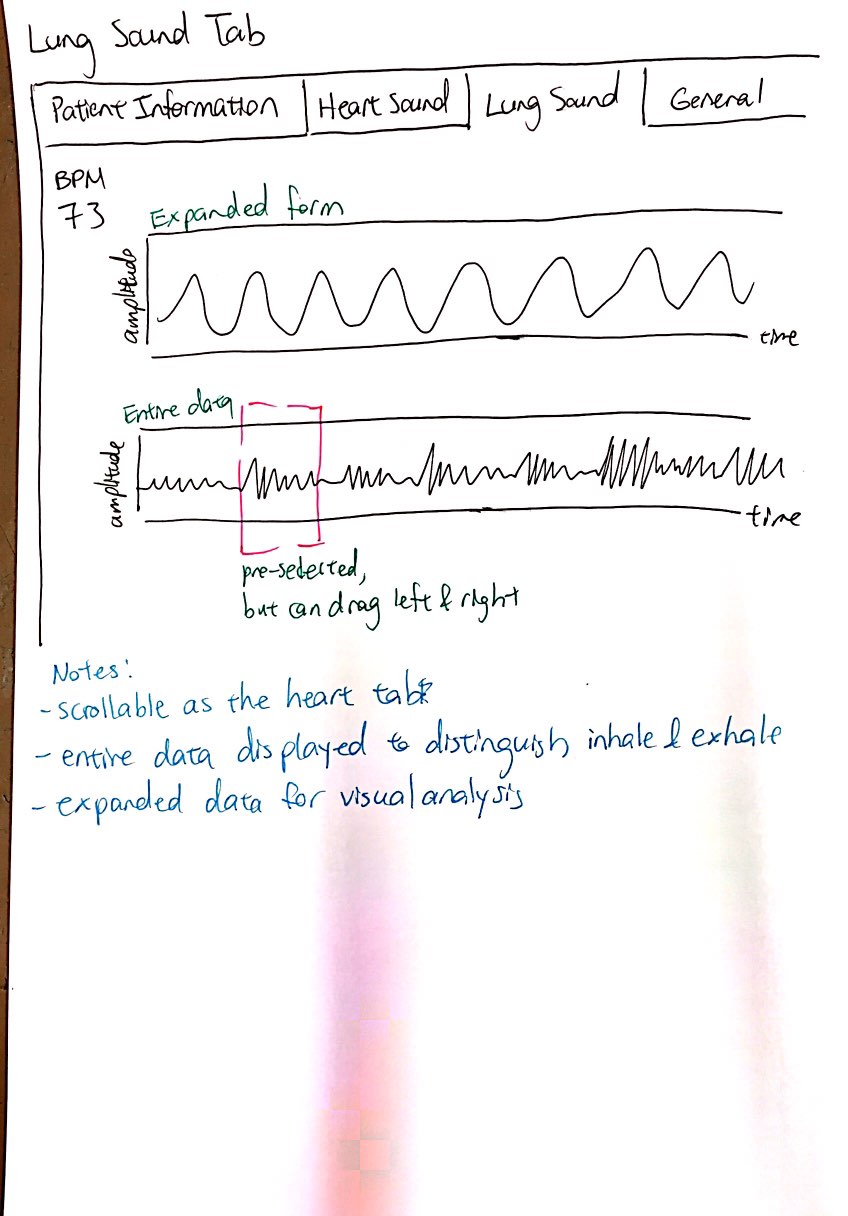 Lung Sound Tab
Patient Information Heart Sound Lung Sound General
BPM
73
Expanded form
amplitude
time
Entire data
amplitude
time
pre-selected,
but can drag left & right
Notes:
- scrollable as the heart tab
- entire data displayed to distinguish inhale & exhale
- expanded data for visual analysis